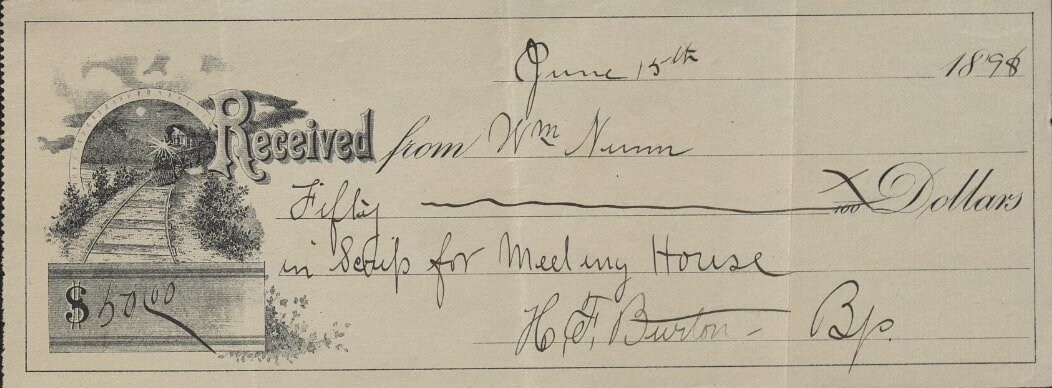 June 15th 1898
Received from Wm Nunn
Fifty X/100 Dollars
in Scrip for Meeting House
$50.00
H. F. Burton - Bp.